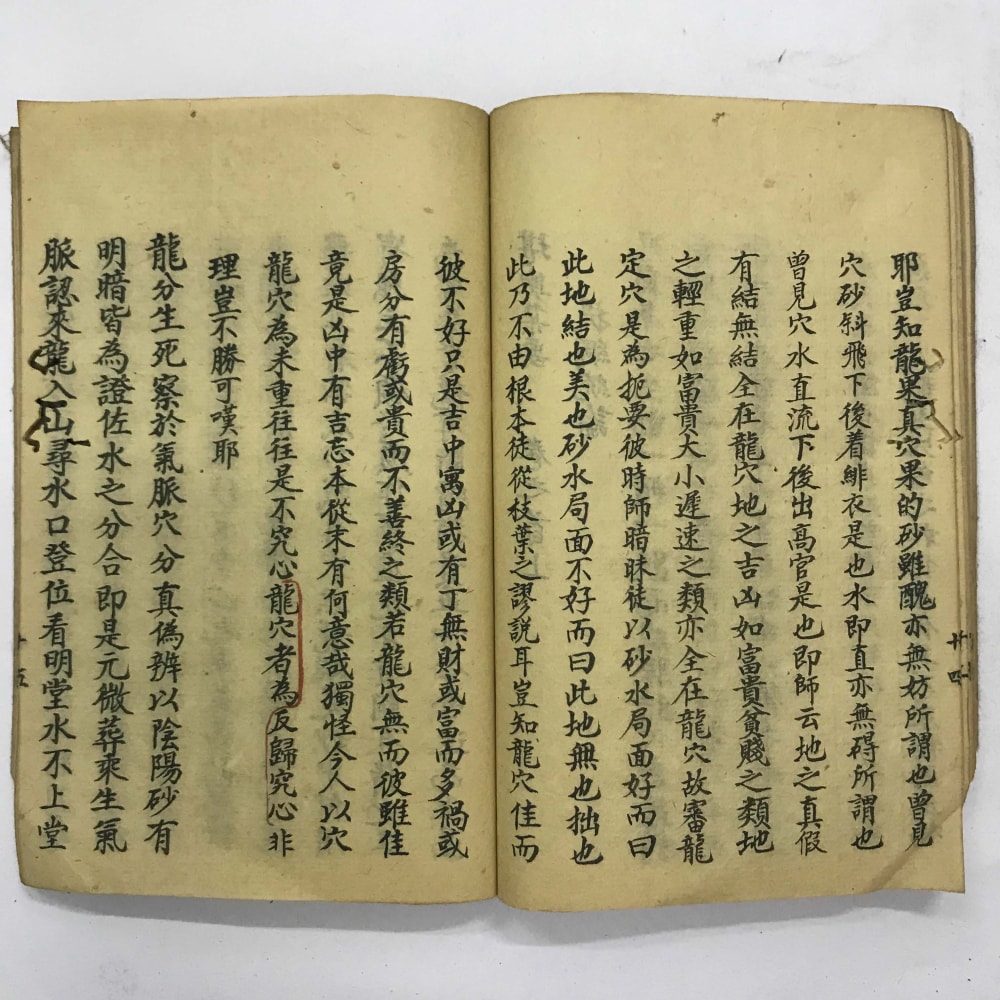 耶豈知龍果真穴果的砂雖醜亦無妨所謂也曾見
穴砂斜飛下後着緋衣是也水即直亦無碍所謂也
曾見穴水直流下後出高官是也即師云地之真假
有結無結全在龍穴地之吉凶如富貴貧賤之類地
之輕重如富貴大小遲速之類亦全在龍穴故審龍
定穴是為扼要彼時師暗昧徒以砂水局面好而曰
此地結也美也砂水局面不好而曰此地無也拙也
此乃不由根本徒從枝葉之謬説耳豈知龍穴佳而
廿四
彼不好只是吉中寓凶或有丁無財或富而多禍或
房分有虧或貴而不善終之類若龍穴無而彼雖佳
竟是凶中有吉忘本從末有何意哉獨怪今人以穴
龍穴為未重往往是不究心龍穴者為反歸究心非
理豈不勝可嘆耶
龍分生死察於氣脈穴分真偽辨以陰陽砂有
明暗皆為證佐水之分合即是元微葬乘生氣
脈認來龍入山尋水口登位看明堂水不上堂
十五